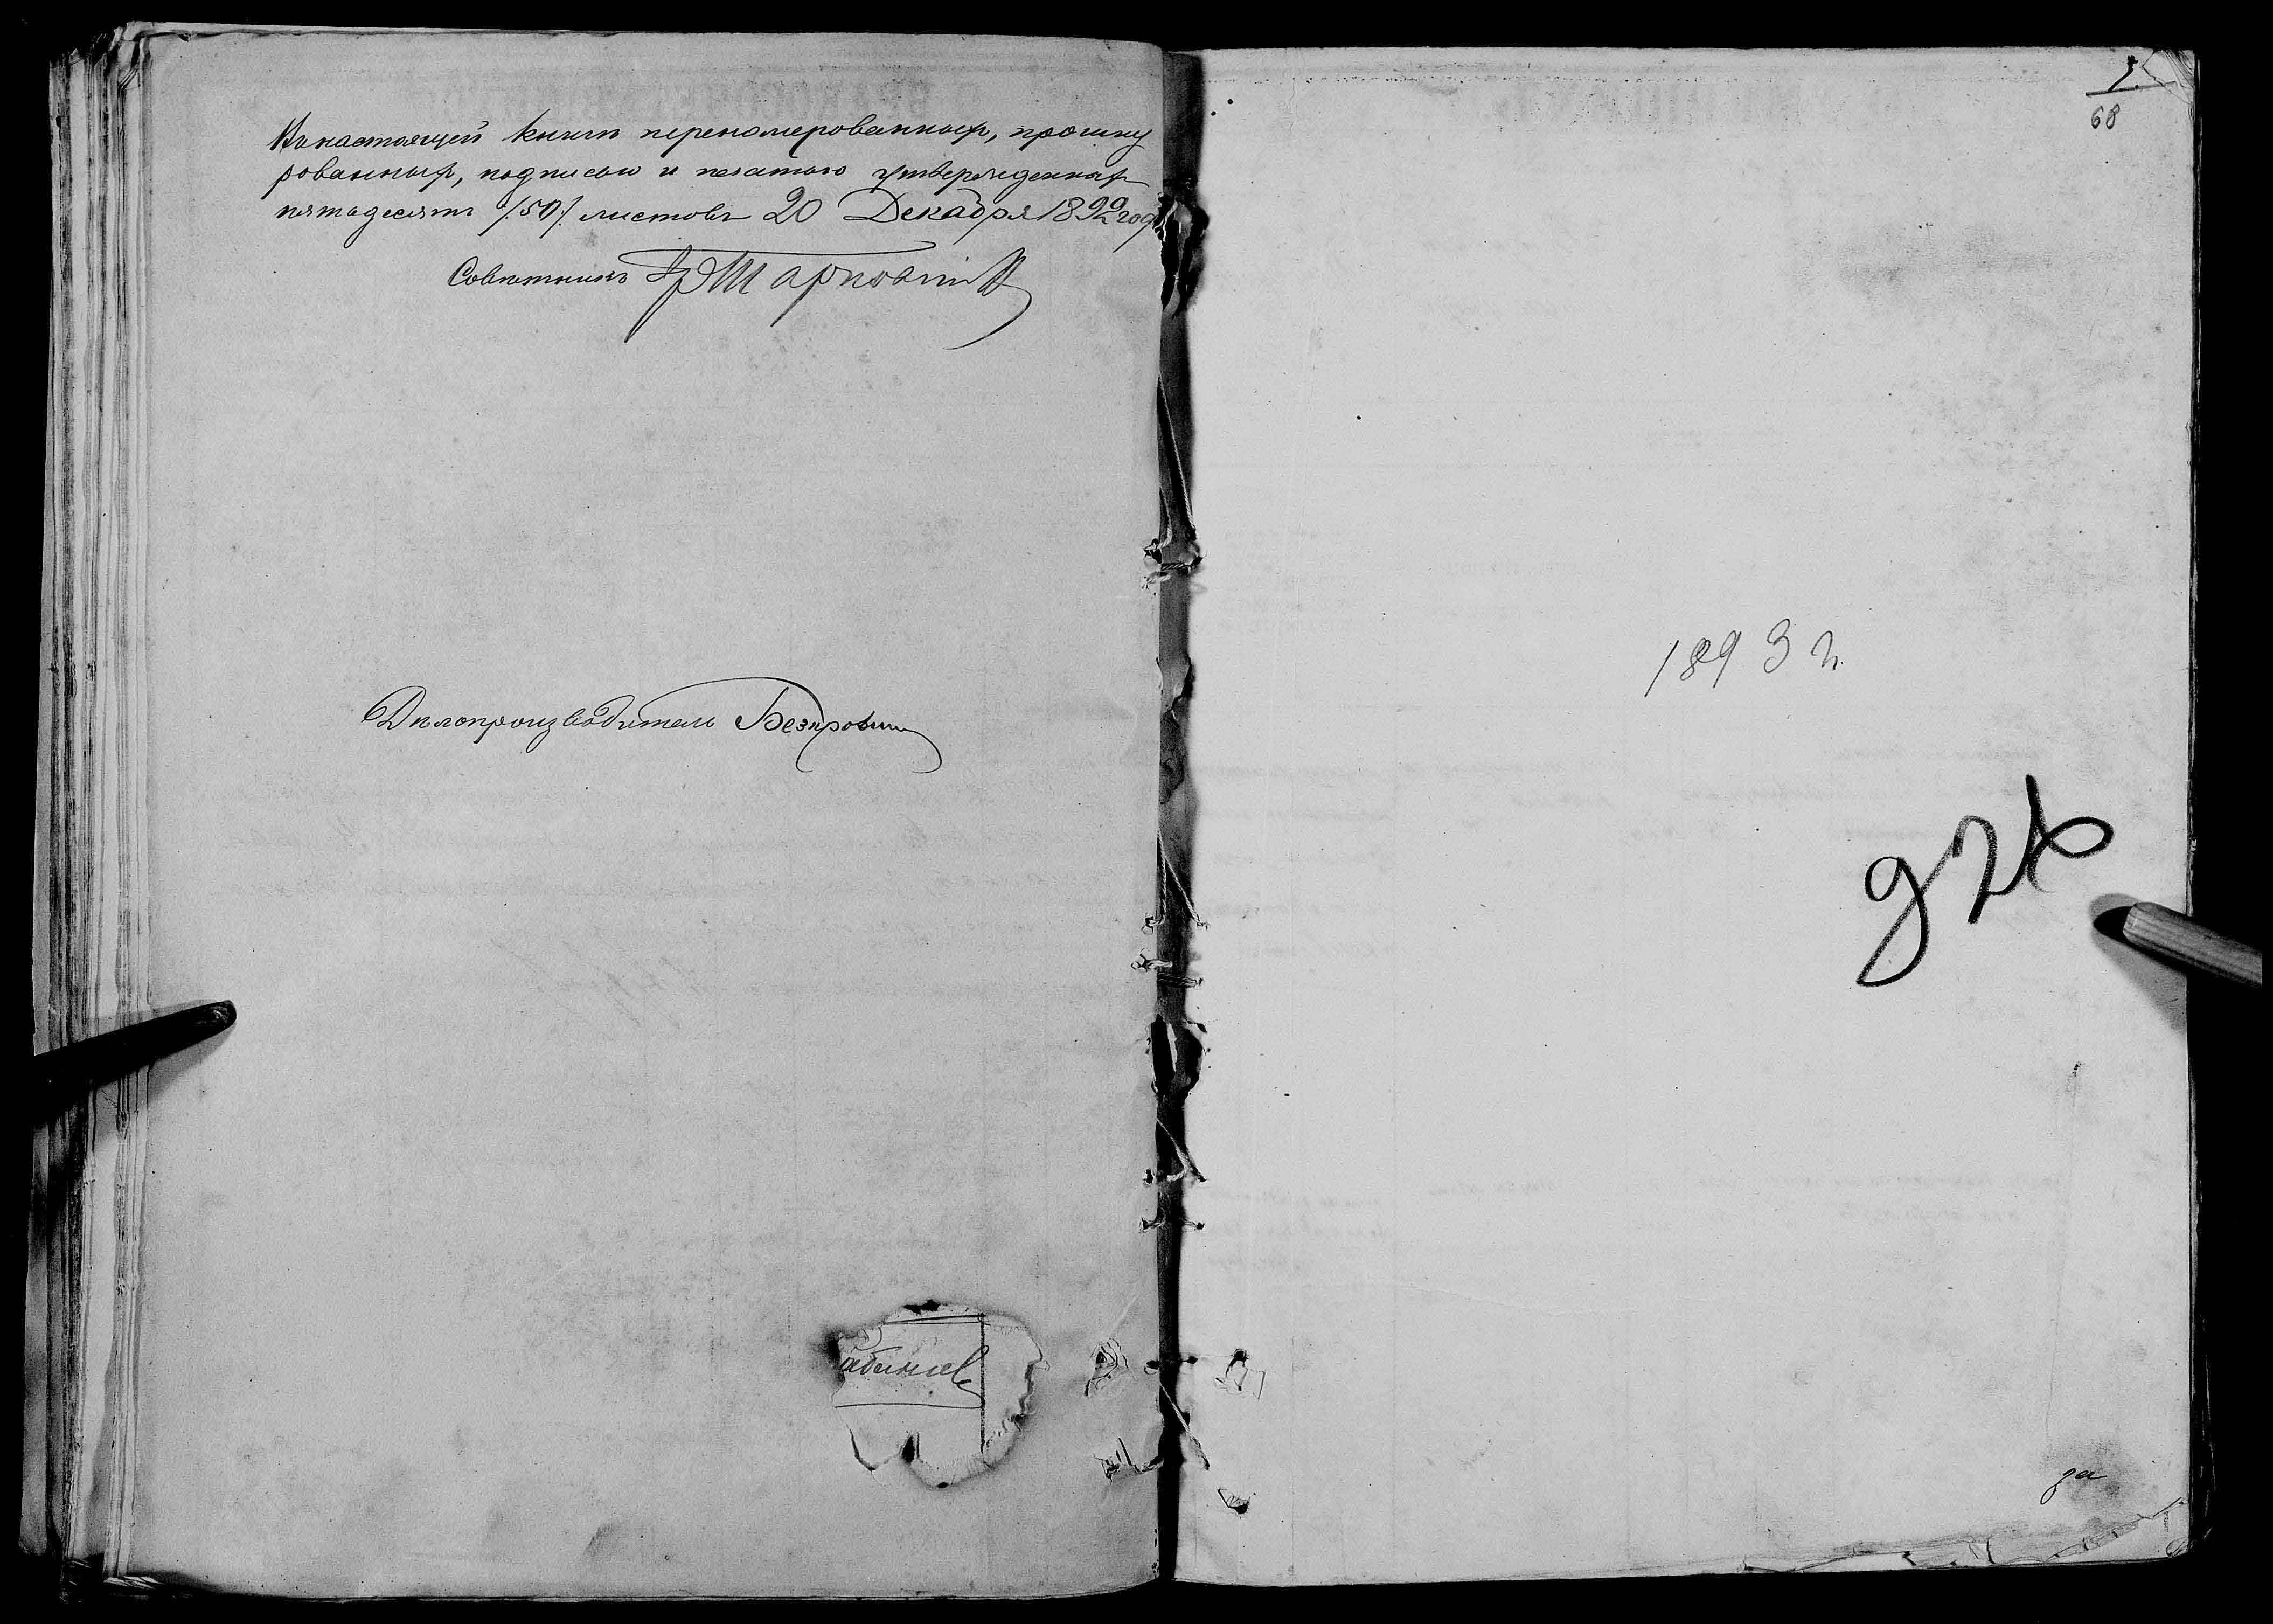 Въ настоящей книгѣ переномерованныхъ, прошну
рованныхъ, подписью и печатью утвержденныхъ
пятьдесятъ /50/ листовъ 20 Декабря 1892 года
Совѣтникъ
Дѣлопроизводитель
1
68
1893 г.
за